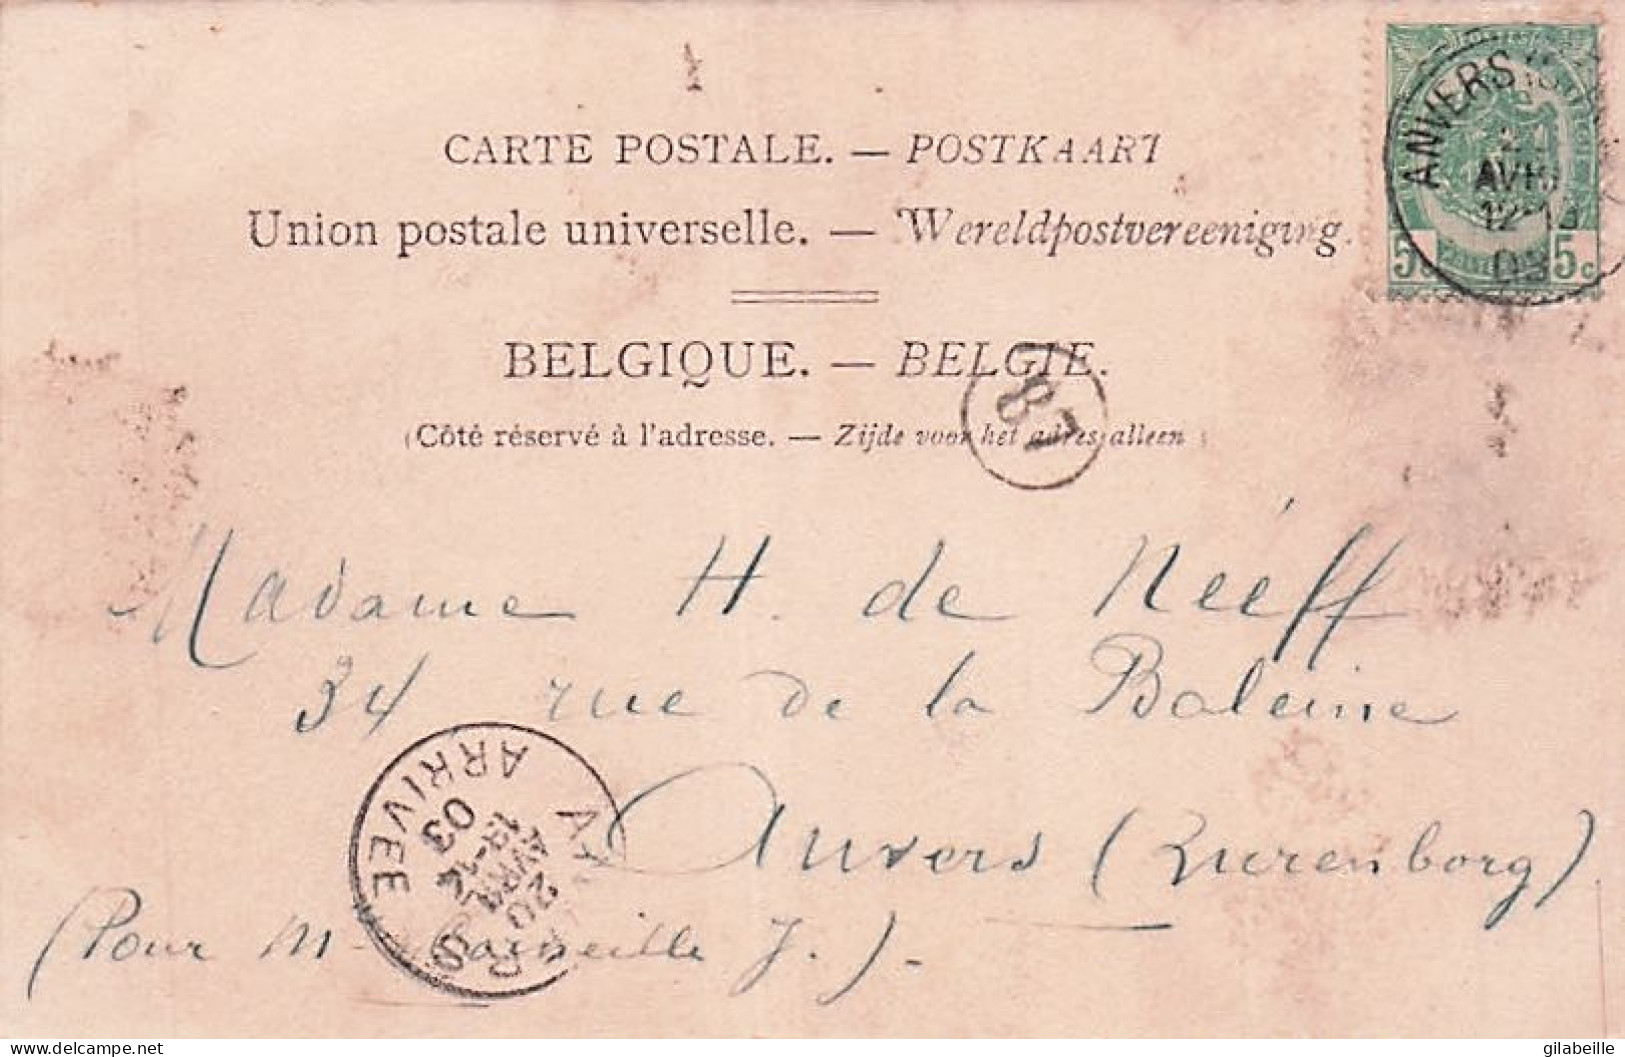 CARTE POSTALE. — POSTKAART
Union postale universelle. — Wereldpostvereeniging.
BELGIQUE. — BELGIE.
(Côté réservé à l'adresse. — Zijde voor het adres alleen)
ANVERS
AVR
12-13
03
5c 5c
87
Madame H. de Neéff
34 rue de la Baleine
Anvers (Zurenborg)
(Pour M. Corneille J.).-
ARRIVEE
20
AVRIL
03
delcampe.net
gilabeille